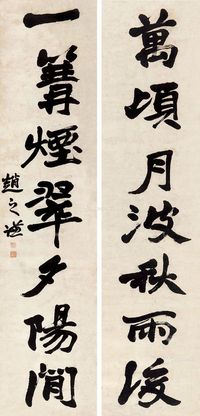 萬頃月波秋雨後
一篝煙翠夕陽閒
趙之謙